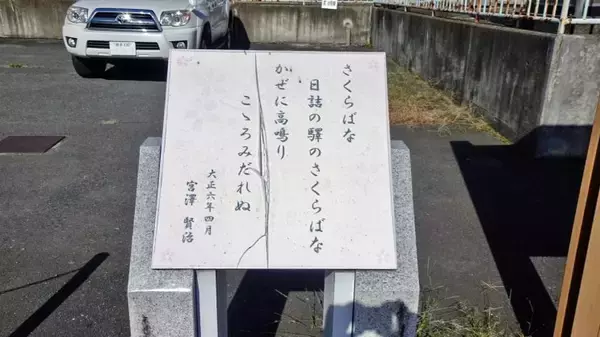 さくらばな
日詰の驛のさくらばな
かぜに高鳴り
こゝろみだれぬ
大正六年四月
宮澤 賢治